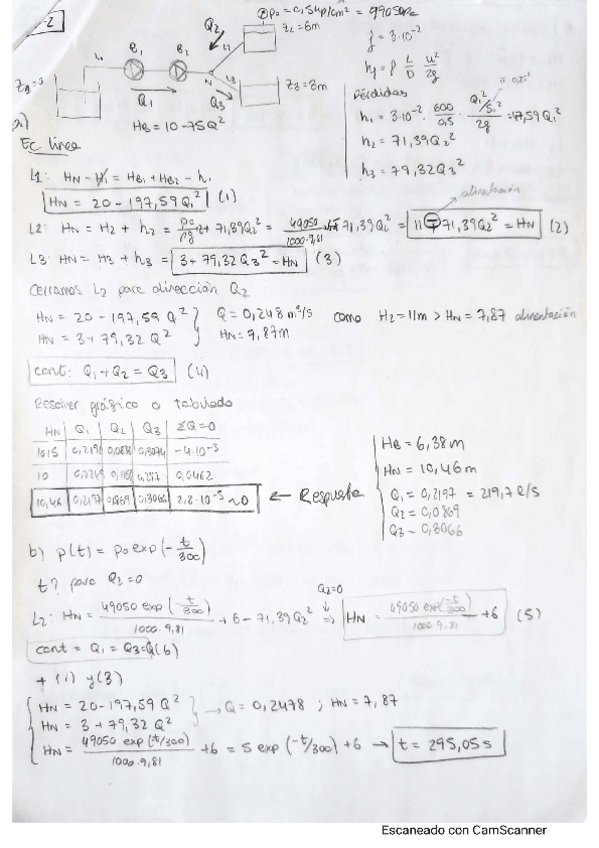 -2
② p₀ = 0,5 kp/cm² = 49050Pa
z₂ = 6m
Q₂
L₁
B₁
B₂
L₃
N
z₃ = 3m
Q₁
Q₃
HB = 10 - 75Q²
f = 3·10⁻²
h_f = f L/D u²/2g
Pérdidas
h₁ = 3·10⁻² · 600/0,5 · Q₁²/S²/2g = 47,59Q₁²
h₂ = 71,39Q₂²
h₃ = 79,32Q₃²
a)
Ec. linea
L1: HN - H₁ = HB₁ + HB₂ - h₁
HN = 20 - 197,59 Q₁² (1)
alimentación
L2: HN = H₂ + h₂ = p₀/ρg + z + 71,39Q₂² = 49050/1000·9,81 + 6 71,39Q₂² = 11 - 71,39Q₂² = HN (2)
L3: HN = H₃ + h₃ = 3 + 79,32 Q₃² = HN (3)
Cerramos L₂ para dirección Q₂
HN = 20 - 197,59 Q²
HN = 3 + 79,32 Q²
Q = 0,248 m³/s
HN = 7,87m
como H₂ = 11m > HN = 7,87 alimentación
cont: Q₁ + Q₂ = Q₃ (4)
Resolver gráfico o tabulado
HN | Q₁ | Q₂ | Q₃ | ΣQ=0
10,5 | 0,2192 | 0,0838 | 0,3074 | -4·10⁻³
10 | 0,2249 | 0,297 | 0,0462
10,46 | 0,2197 | 0,0869 | 0,3066 | 2,2·10⁻⁵ ~0 ← Respuesta
HB = 6,38m
HN = 10,46m
Q₁ = 0,2197 = 219,7 l/s
Q₂ = 0,0869
Q₃ = 0,3066
b) p(t) = p₀ exp(-t/300)
t? para Q₂=0
L₂: HN = 49050 exp(-t/300)/1000·9,81 + 6 - 71,39Q₂² Q₂=0 ⇒ HN = 49050 exp(-t/300)/1000·9,81 + 6 (5)
cont = Q₁ = Q₃ = Q (6)
+ (1) y (3)
HN = 20 - 197,59 Q²
HN = 3 + 79,32 Q²
→ Q = 0,2478 ; HN = 7,87
HN = 49050 exp(t/300)/1000·9,81 + 6 = 5 exp(-t/300) + 6 → t = 295,05 s
Escaneado con CamScanner